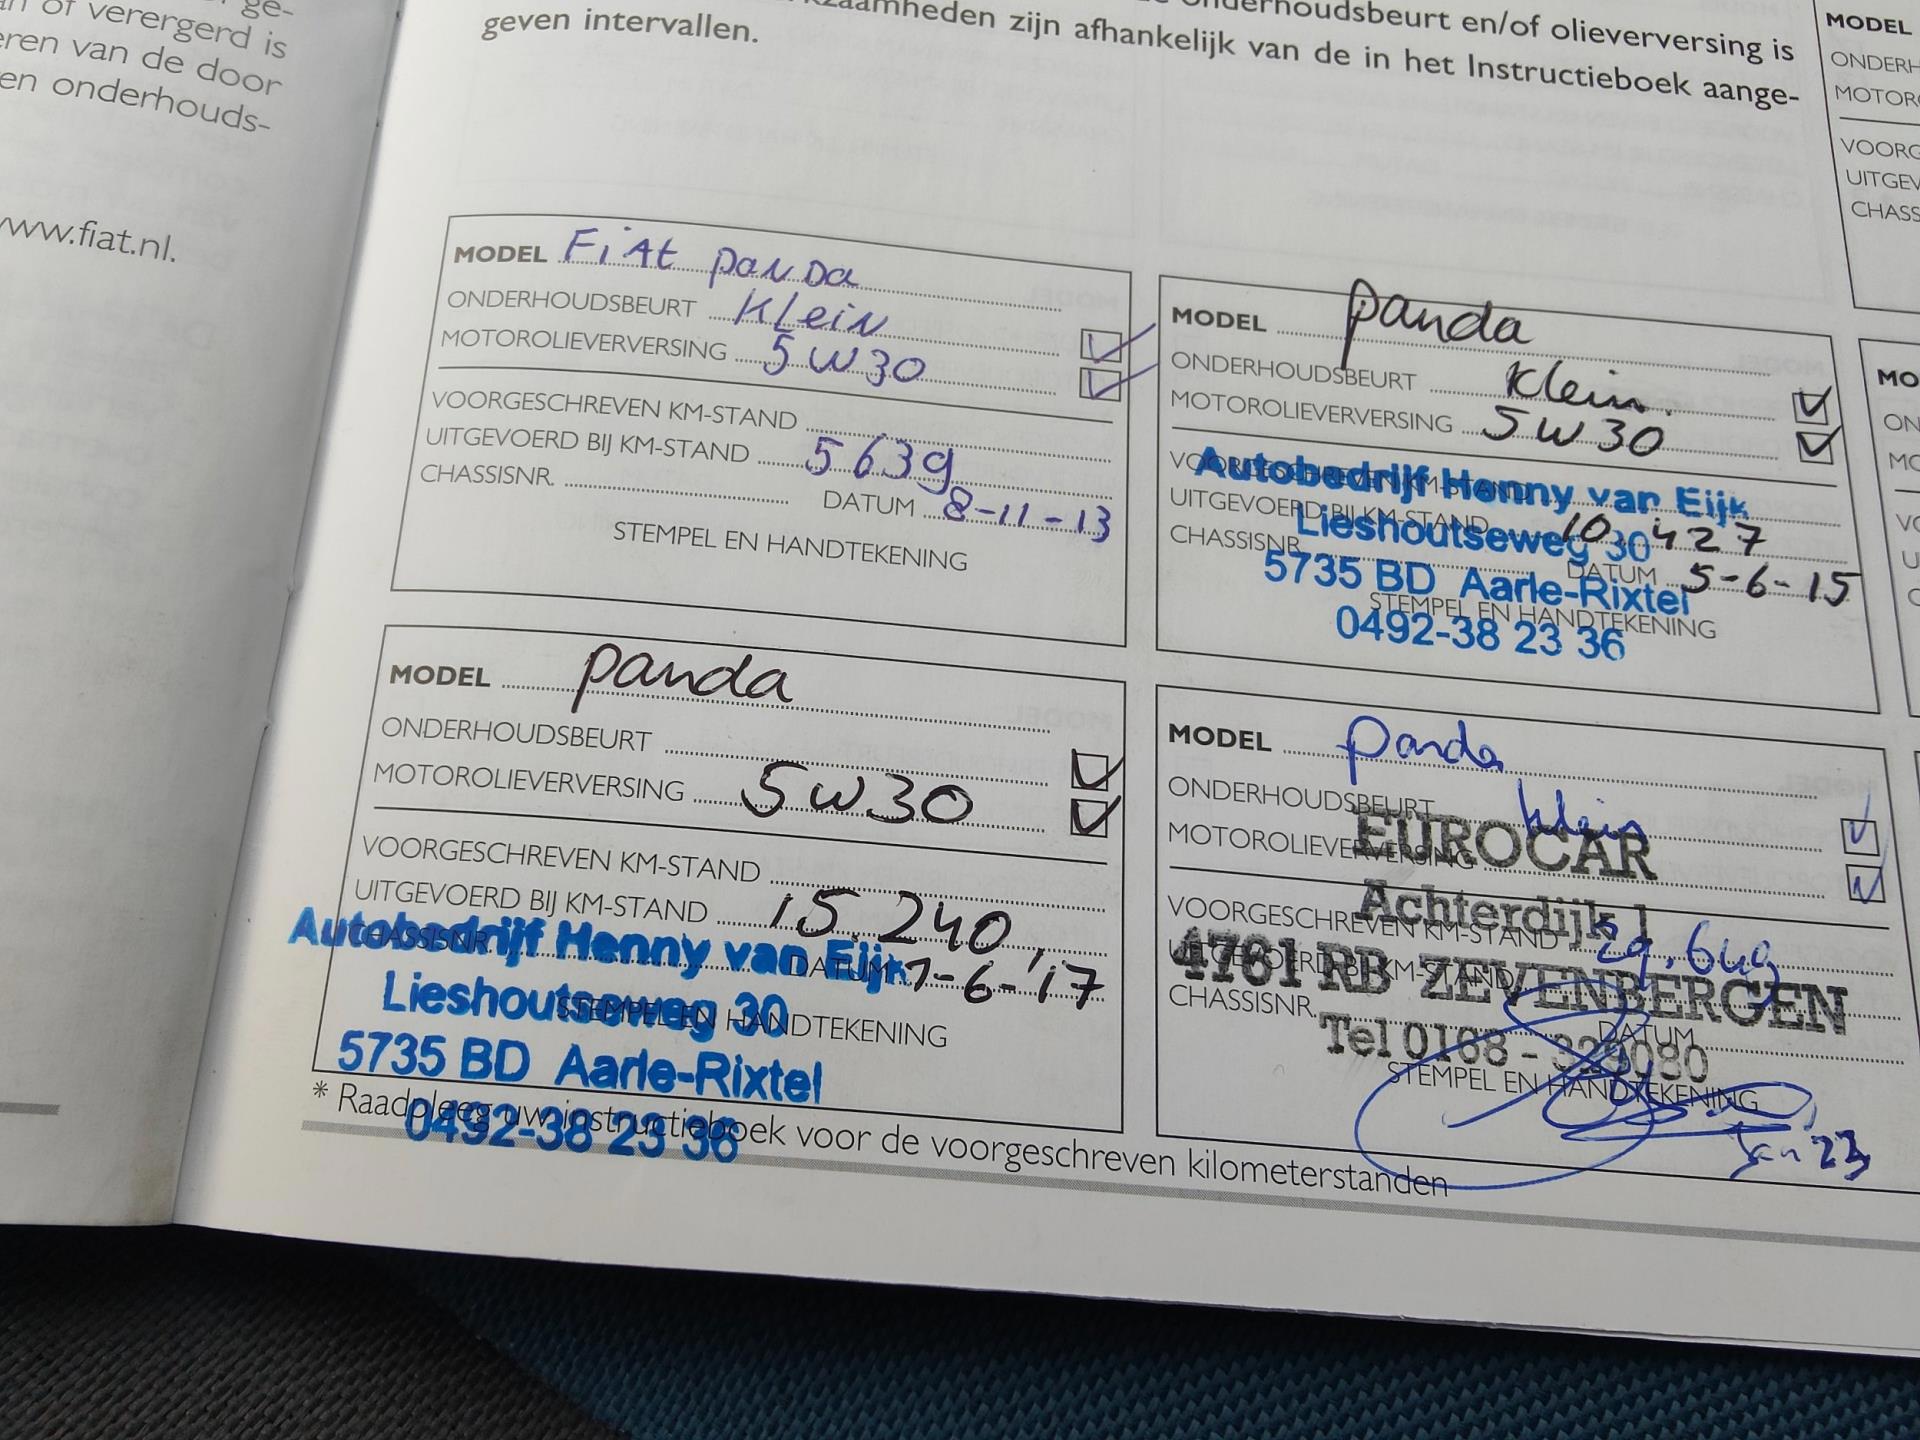 of verergerd is
eren van de door
en onderhouds-
www.fiat.nl.
onderhoudsbeurt en/of olieverversing is
zijn afhankelijk van de in het Instructieboek aange-
geven intervallen.
MODEL Fiat panda
ONDERHOUDSBEURT Klein
MOTOROLIEVERVERSING 5W30
VOORGESCHREVEN KM-STAND
UITGEVOERD BIJ KM-STAND 5639
CHASSISNR. DATUM 8-11-13
STEMPEL EN HANDTEKENING
MODEL panda
ONDERHOUDSBEURT klein.
MOTOROLIEVERVERSING 5W30
VOORGESCHREVEN KM-STAND
Autobedrijf Henny van Eijk
UITGEVOERD BIJ KM-STAND 10.427
Lieshoutseweg 30
CHASSISNR. DATUM 5-6-15
5735 BD Aarle-Rixtel
STEMPEL EN HANDTEKENING
0492-38 23 36
MODEL panda
ONDERHOUDSBEURT
MOTOROLIEVERVERSING 5W30
VOORGESCHREVEN KM-STAND
UITGEVOERD BIJ KM-STAND 15.240,
CHASSISNR. DATUM 7-6-17
Autobedrijf Henny van Eijk
Lieshoutseweg 30
STEMPEL EN HANDTEKENING
5735 BD Aarle-Rixtel
0492-38 23 36
MODEL panda
ONDERHOUDSBEURT klein
MOTOROLIEVERVERSING
EUROCAR
Achterdijk 1
VOORGESCHREVEN KM-STAND
4761 RB ZEVENBERGEN
UITGEVOERD BIJ KM-STAND
CHASSISNR. DATUM
Tel 0168 - 329080
STEMPEL EN HANDTEKENING
Jan 23
* Raadpleeg uw instructieboek voor de voorgeschreven kilometerstanden
MODEL